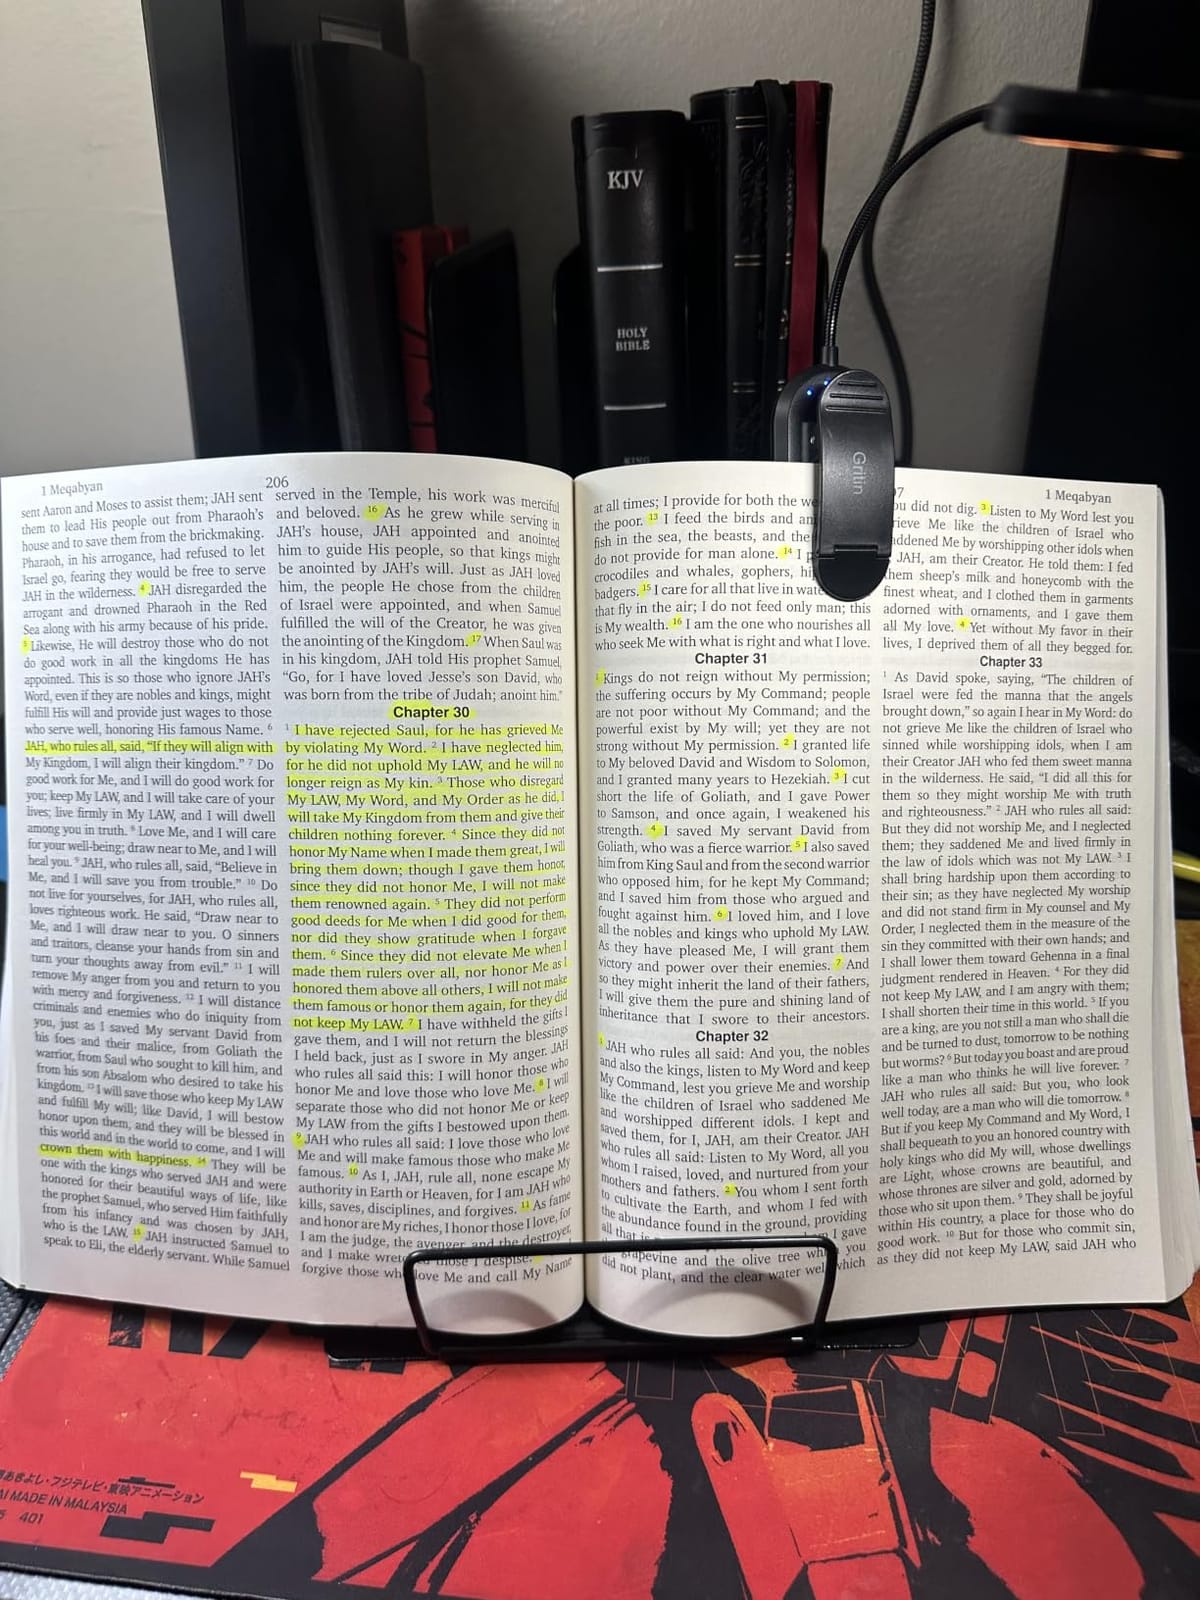 KJV
HOLY
BIBLE
KING
Gritin
1 Meqabyan
206
sent Aaron and Moses to assist them; JAH sent
them to lead His people out from Pharaoh's
house and to save them from the brickmaking.
Pharaoh, in his arrogance, had refused to let
Israel go, fearing they would be free to serve
JAH in the wilderness. 4 JAH disregarded the
arrogant and drowned Pharaoh in the Red
Sea along with his army because of his pride.
5 Likewise, He will destroy those who do not
do good work in all the kingdoms He has
appointed. This is so those who ignore JAH's
Word, even if they are nobles and kings, might
fulfill His will and provide just wages to those
who serve well, honoring His famous Name. 6
JAH, who rules all, said, "If they will align with
My Kingdom, I will align their kingdom." 7 Do
good work for Me, and I will do good work for
you; keep My LAW, and I will take care of your
lives; live firmly in My LAW, and I will dwell
among you in truth. 8 Love Me, and I will care
for your well-being; draw near to Me, and I will
heal you. 9 JAH, who rules all, said, "Believe in
Me, and I will save you from trouble." 10 Do
not live for yourselves, for JAH, who rules all,
loves righteous work. He said, "Draw near to
Me, and I will draw near to you. O sinners
and traitors, cleanse your hands from sin and
turn your thoughts away from evil." 11 I will
remove My anger from you and return to you
with mercy and forgiveness. 12 I will distance
criminals and enemies who do iniquity from
you, just as I saved My servant David from
his foes and their malice, from Goliath the
warrior, from Saul who sought to kill him, and
from his son Absalom who desired to take his
kingdom. 13 I will save those who keep My LAW
and fulfill My will; like David, I will bestow
honor upon them, and they will be blessed in
this world and in the world to come, and I will
crown them with happiness. 14 They will be
one with the kings who served JAH and were
honored for their beautiful ways of life, like
the prophet Samuel, who served Him faithfully
from his infancy and was chosen by JAH,
who is the LAW. 15 JAH instructed Samuel to
speak to Eli, the elderly servant. While Samuel
served in the Temple, his work was merciful
and beloved. 16 As he grew while serving in
JAH's house, JAH appointed and anointed
him to guide His people, so that kings might
be anointed by JAH's will. Just as JAH loved
him, the people He chose from the children
of Israel were appointed, and when Samuel
fulfilled the will of the Creator, he was given
the anointing of the Kingdom. 17 When Saul was
in his kingdom, JAH told His prophet Samuel,
"Go, for I have loved Jesse's son David, who
was born from the tribe of Judah; anoint him."
Chapter 30
1 I have rejected Saul, for he has grieved Me
by violating My Word. 2 I have neglected him,
for he did not uphold My LAW, and he will no
longer reign as My kin. 3 Those who disregard
My LAW, My Word, and My Order as he did, I
will take My Kingdom from them and give their
children nothing forever. 4 Since they did not
honor My Name when I made them great, I will
bring them down; though I gave them honor,
since they did not honor Me, I will not make
them renowned again. 5 They did not perform
good deeds for Me when I did good for them,
nor did they show gratitude when I forgave
them. 6 Since they did not elevate Me when I
made them rulers over all, nor honor Me as I
honored them above all others, I will not make
them famous or honor them again, for they did
not keep My LAW. 7 I have withheld the gifts I
gave them, and I will not return the blessings
I held back, just as I swore in My anger. JAH
who rules all said this: I will honor those who
honor Me and love those who love Me. 8 I will
separate those who did not honor Me or keep
My LAW from the gifts I bestowed upon them.
9 JAH who rules all said: I love those who love
Me and will make famous those who make Me
famous. 10 As I, JAH, rule all, none escape My
authority in Earth or Heaven, for I am JAH who
kills, saves, disciplines, and forgives. 11 As fame
and honor are My riches, I honor those I love, for
I am the judge, the avenger, and the destroyer,
and I make those I despise.
forgive those who love Me and call My Name
1 Meqabyan
at all times; I provide for both the
the poor. 13 I feed the birds and
fish in the sea, the beasts, and the
do not provide for man alone. 14 I
crocodiles and whales, gophers,
badgers. 15 I care for all that live in
that fly in the air; I do not feed only man; this
is My wealth. 16 I am the one who nourishes all
who seek Me with what is right and what I love.
Chapter 31
1 Kings do not reign without My permission;
the suffering occurs by My Command; people
are not poor without My Command; and the
powerful exist by My will; yet they are not
strong without My permission. 2 I granted life
to My beloved David and Wisdom to Solomon,
and I granted many years to Hezekiah. 3 I cut
short the life of Goliath, and I gave Power
to Samson, and once again, I weakened his
strength. 4 I saved My servant David from
Goliath, who was a fierce warrior. 5 I also saved
him from King Saul and from the second warrior
who opposed him, for he kept My Command;
and I saved him from those who argued and
fought against him. 6 I loved him, and I love
all the nobles and kings who uphold My LAW.
As they have pleased Me, I will grant them
victory and power over their enemies. 7 And
so they might inherit the land of their fathers,
I will give them the pure and shining land of
inheritance that I swore to their ancestors.
Chapter 32
1 JAH who rules all said: And you, the nobles
and also the kings, listen to My Word and keep
My Command, lest you grieve Me and worship
like the children of Israel who saddened Me
and worshipped different idols. I kept and
saved them, for I, JAH, am their Creator. JAH
who rules all said: Listen to My Word, all you
whom I raised, loved, and nurtured from your
mothers and fathers. 2 You whom I sent forth
to cultivate the Earth, and whom I fed with
the abundance found in the ground, providing
all that is I gave
grapevine and the olive tree you
did not plant, and the clear water well which
you did not dig. 3 Listen to My Word lest you
grieve Me like the children of Israel who
saddened Me by worshipping other idols when
JAH, am their Creator. He told them: I fed
them sheep's milk and honeycomb with the
finest wheat, and I clothed them in garments
adorned with ornaments, and I gave them
all My love. 4 Yet without My favor in their
lives, I deprived them of all they begged for.
Chapter 33
1 As David spoke, saying, "The children of
Israel were fed the manna that the angels
brought down," so again I hear in My Word: do
not grieve Me like the children of Israel who
sinned while worshipping idols, when I am
their Creator JAH who fed them sweet manna
in the wilderness. He said, "I did all this for
them so they might worship Me with truth
and righteousness." 2 JAH who rules all said:
But they did not worship Me, and I neglected
them; they saddened Me and lived firmly in
the law of idols which was not My LAW. 3 I
shall bring hardship upon them according to
their sin; as they have neglected My worship
and did not stand firm in My counsel and My
Order, I neglected them in the measure of the
sin they committed with their own hands; and
I shall lower them toward Gehenna in a final
judgment rendered in Heaven. 4 For they did
not keep My LAW, and I am angry with them;
I shall shorten their time in this world. 5 If you
are a king, are you not still a man who shall die
and be turned to dust, tomorrow to be nothing
but worms? 6 But today you boast and are proud
like a man who thinks he will live forever. 7
JAH who rules all said: But you, who look
well today, are a man who will die tomorrow. 8
But if you keep My Command and My Word, I
shall bequeath to you an honored country with
holy kings who did My will, whose dwellings
are Light, whose crowns are beautiful, and
whose thrones are silver and gold, adorned by
those who sit upon them. 9 They shall be joyful
within His country, a place for those who do
good work. 10 But for those who commit sin,
as they did not keep My LAW, said JAH who
あきよし・フジテレビ・東映アニメーション
MADE IN MALAYSIA
401